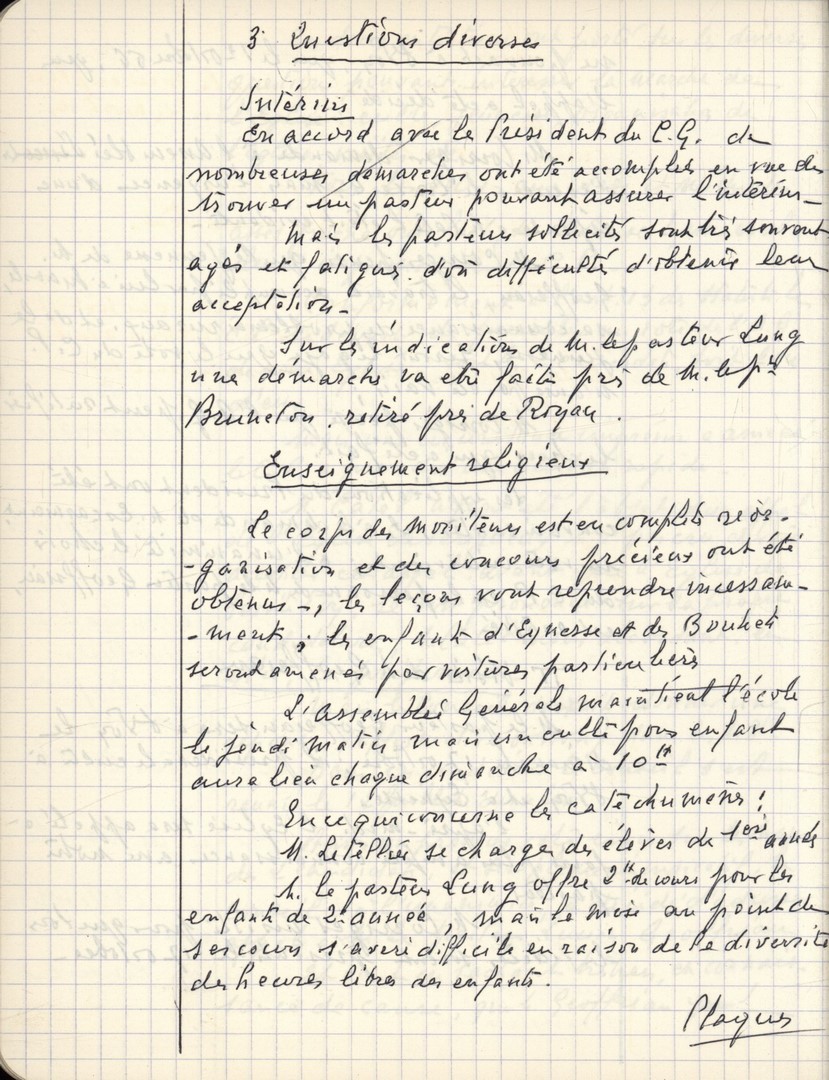 3 Questions diverses
Intérim
En accord avec le Président du C.G. de
nombreuses démarches ont été accomplies en vue de
trouver un pasteur pouvant assurer l'intérim_
Mais les pasteurs sollicités sont très souvent
agés et fatigués d'où difficultés d'obtenir leur
acceptation_
Sur les indications de M. le pasteur Lung
une démarche va être faite près de M. le pr
Bruneton, retiré près de Royan.
Enseignement religieux
Le corps des moniteurs est en complète réor-
-ganisation et des concours précieux ont été
obtenus -, les leçons vont reprendre incessam-
-ment; les enfants d'Eynesse et des Bouhets
seront amenés par voitures particulières
L'assemblée Générale maintient l'école
le jeudi matin mais un culte pour enfants
aura lieu chaque dimanche à 10H
En ce qui concerne les catéchumènes:
M. Letellier se charge des élèves de 1ère année
M. le pasteur Lung offre 2H de cours pour les
enfants de 2e année, mais la mise au point de
ses cours s'avère difficile en raison de la diversité
des heures libres des enfants.
Plaques